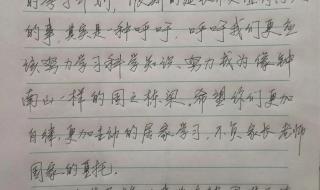 的学习计划，
的事，其实是一种呼吁，呼吁我们更应
该努力学习科学知识、努力成为像钟
南山一样的国之栋梁。希望你们更加
自律，更加主动的居家学习，不负家长老师
国家的重托。